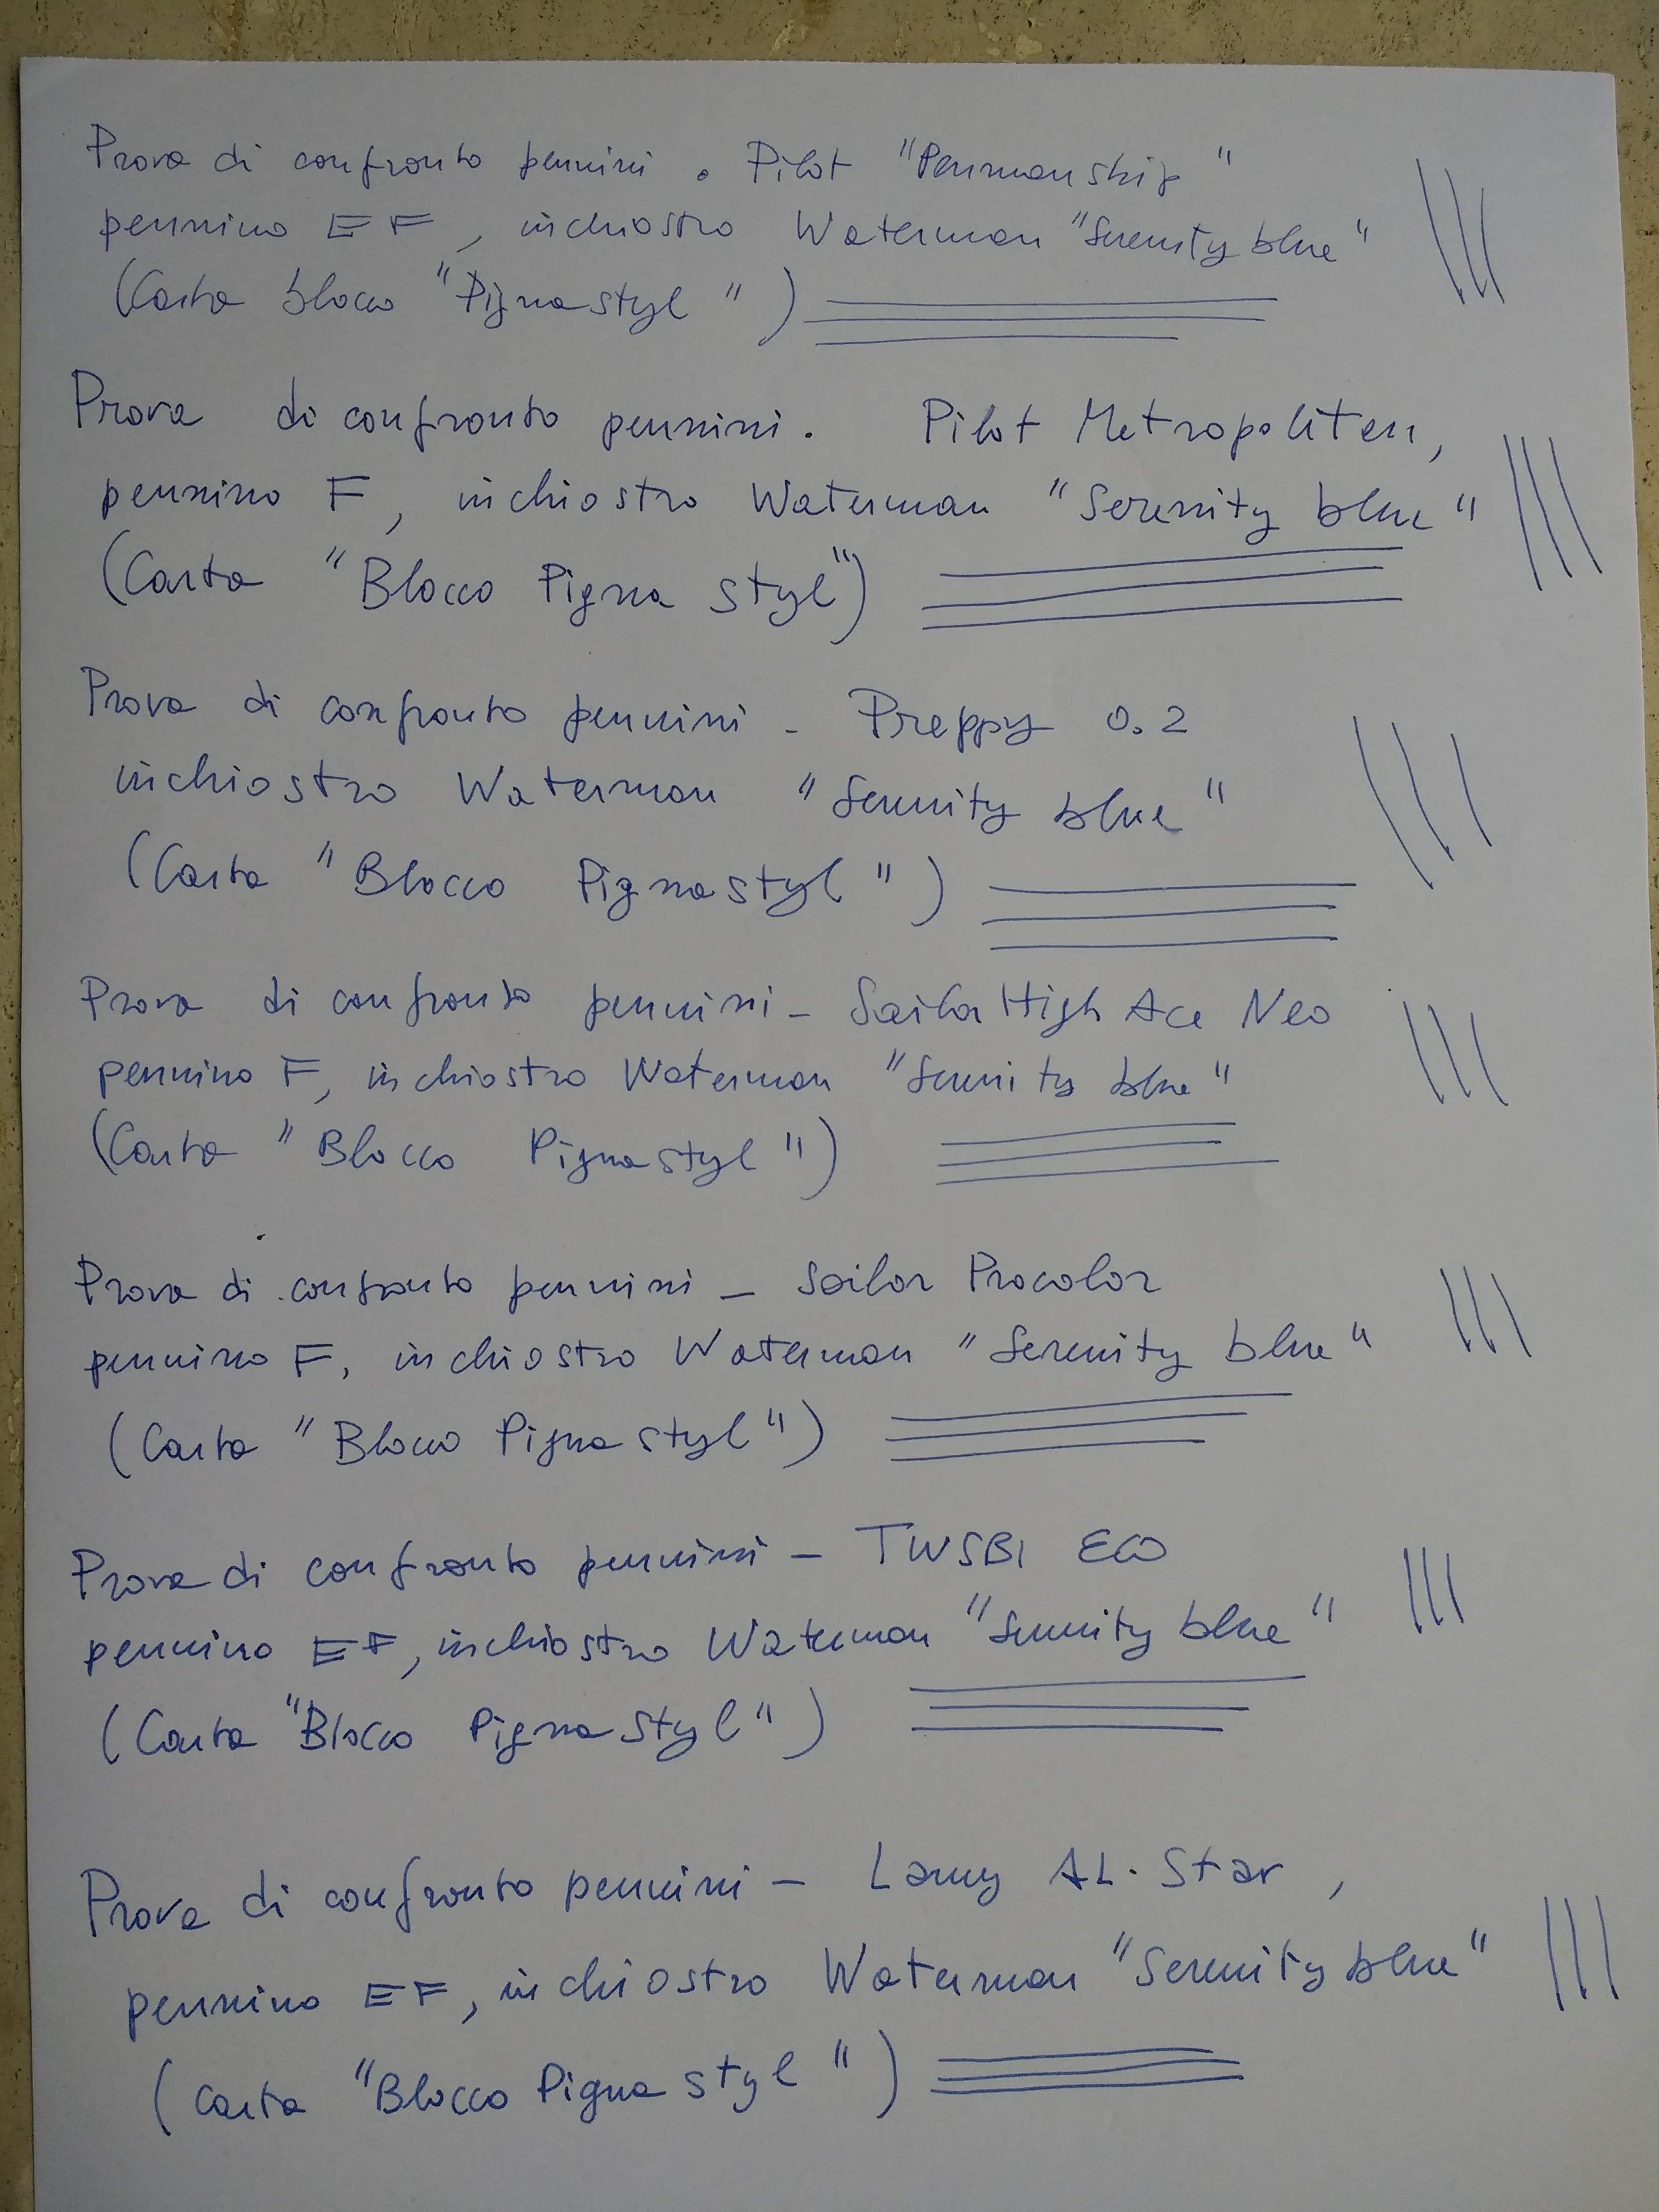 Prova di confronto pennini. Pilot "Penmanship"
pennino EF, inchiostro Waterman "Serenity blue"
(Carta blocco "Pigna styl")
Prova di confronto pennini. Pilot Metropoliten,
pennino F, inchiostro Waterman "Serenity blue"
(Carta "Blocco Pigna styl")
Prova di confronto pennini - Preppy 0.2
inchiostro Waterman "Serenity blue"
(Carta "Blocco Pigna styl")
Prova di confronto pennini - Sailor High Ace Neo
pennino F, inchiostro Waterman "Serenity blue"
(Carta "Blocco Pigna styl")
Prova di confronto pennini - Sailor Procolor
pennino F, inchiostro Waterman "Serenity blue"
(Carta "Blocco Pigna styl")
Prova di confronto pennini - TWSBI ECO
pennino EF, inchiostro Waterman "Serenity blue"
(Carta "Blocco Pigna styl")
Prova di confronto pennini - Lamy AL-Star,
pennino EF, inchiostro Waterman "Serenity blue"
(Carta "Blocco Pigna styl")